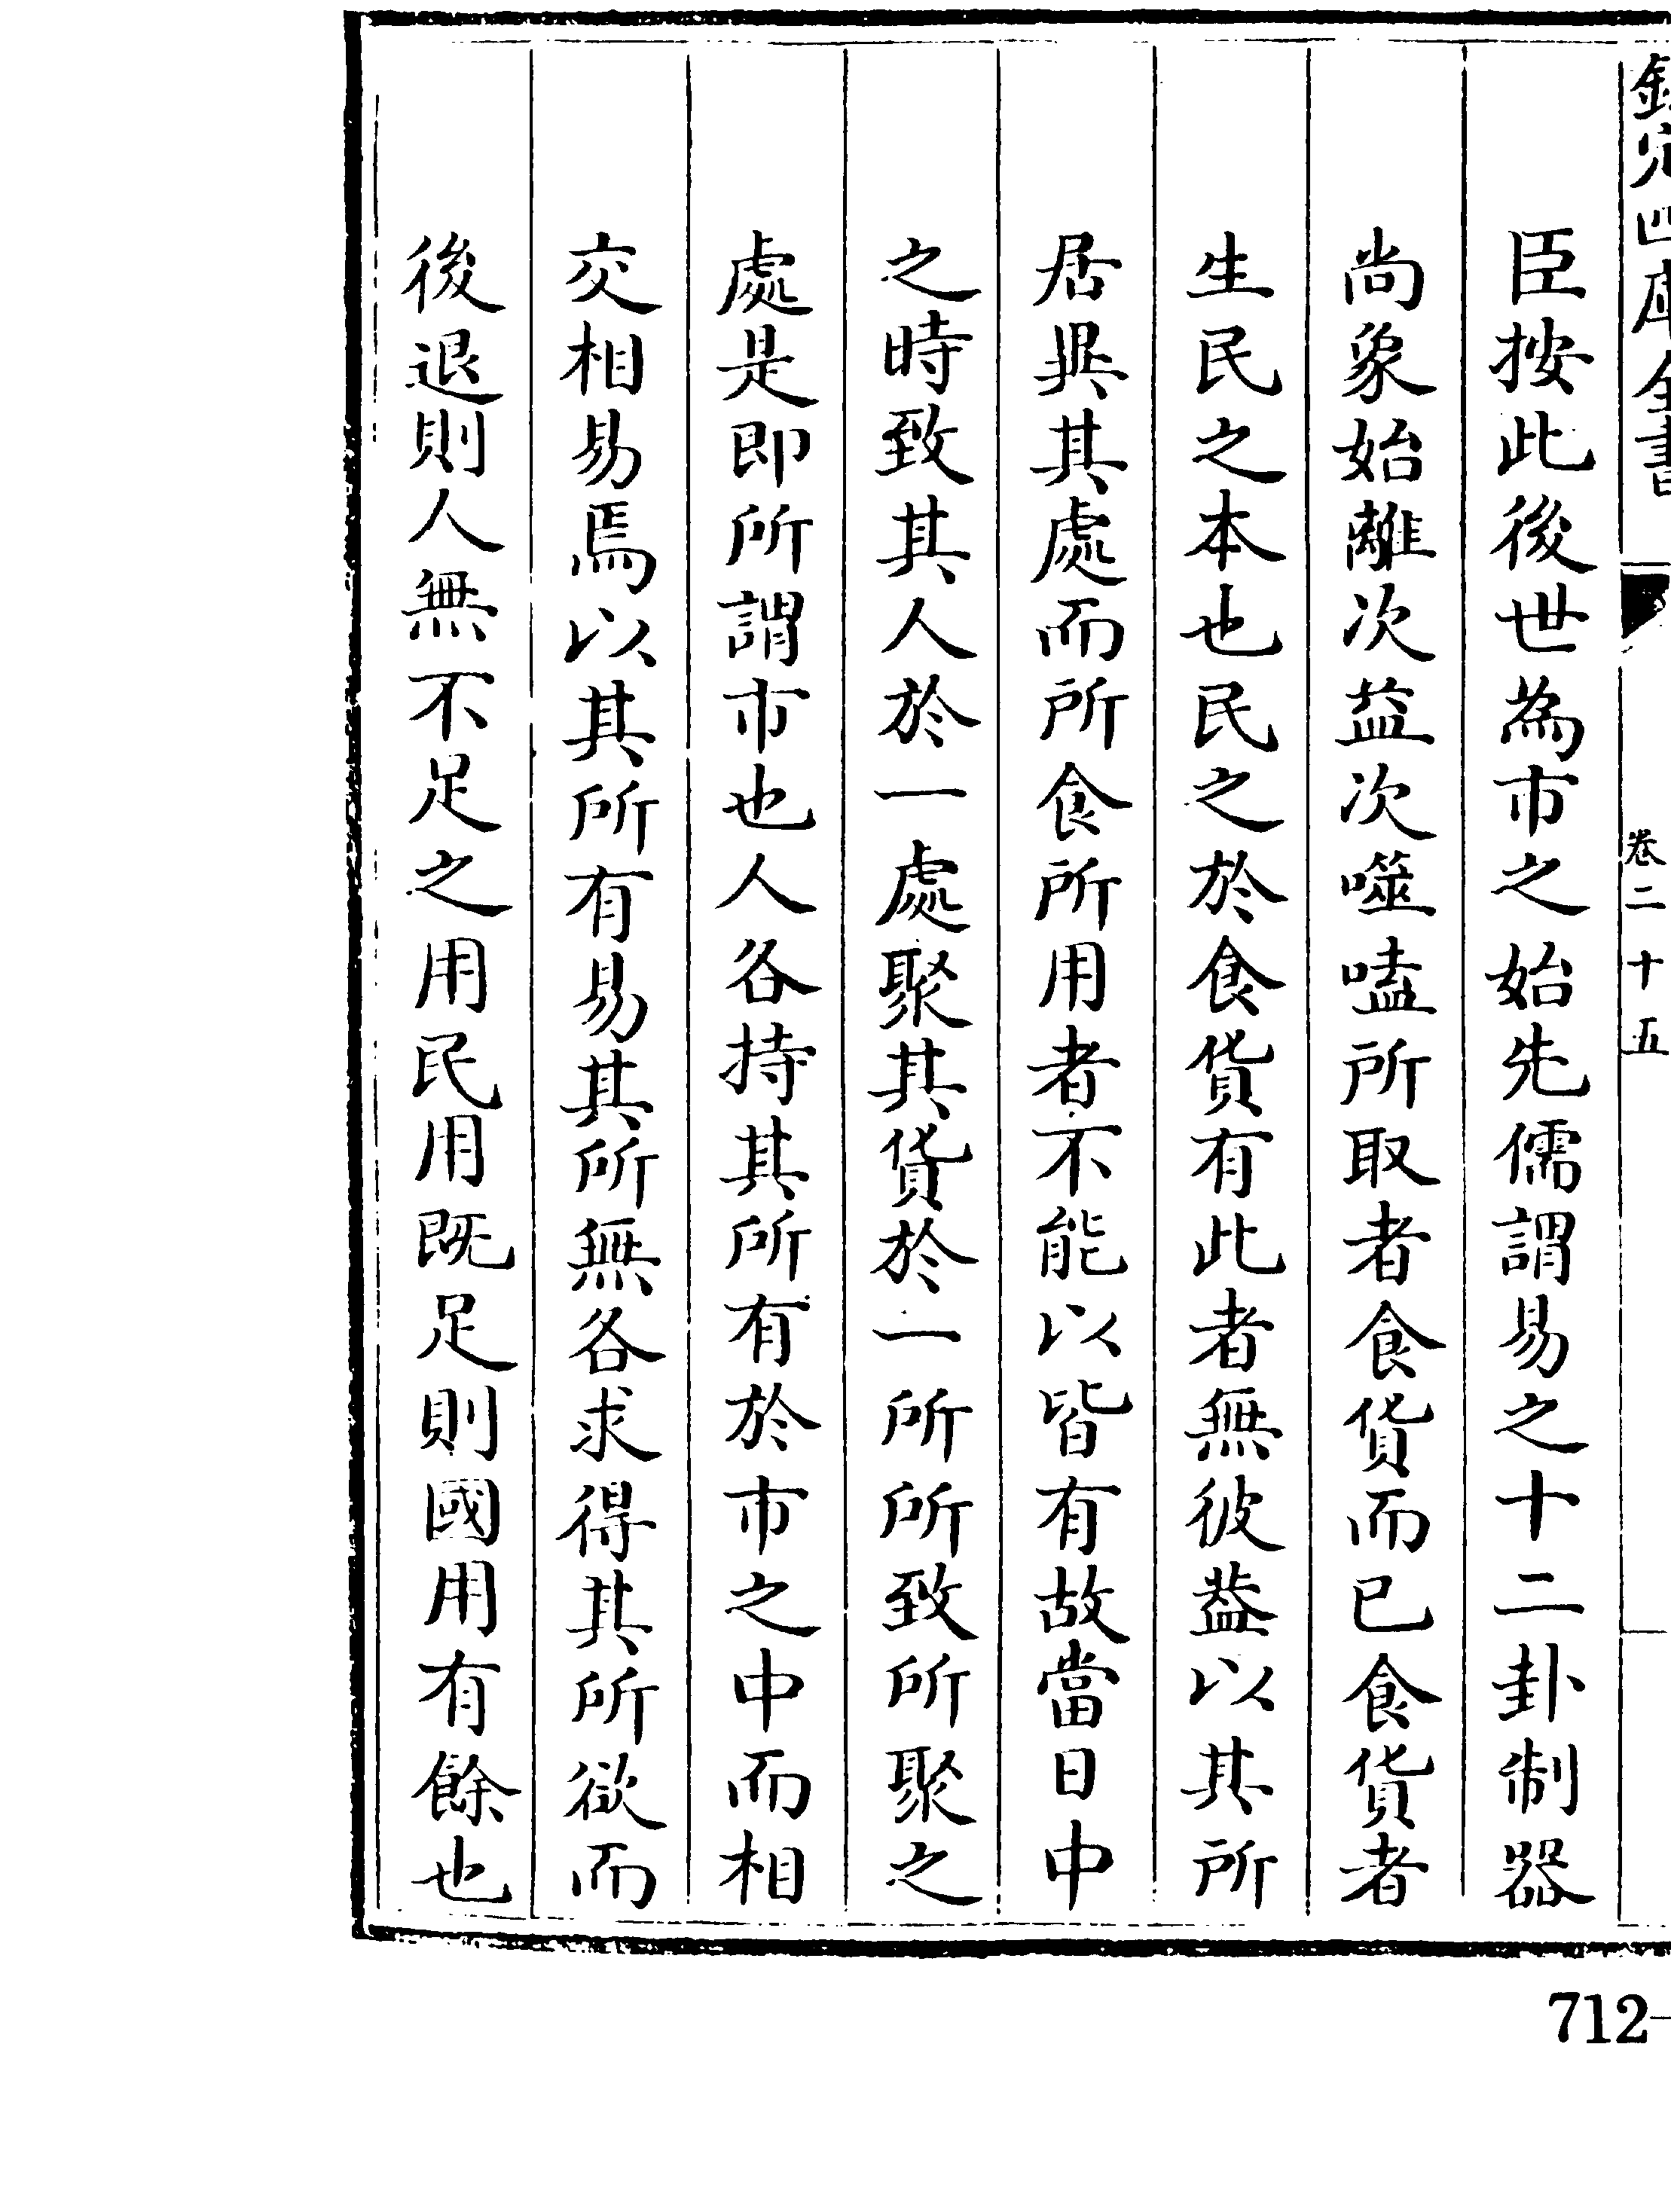 欽定四庫全書
卷二十五
臣按此後世為市之始先儒謂易之十二卦制器
尚象始離次益次噬嗑所取者食貨而已食貨者
生民之本也民之於食貨有此者無彼葢以其所
居異其處而所食所用者不能以皆有故當日中
之時致其人於一處聚其貨於一所所致所聚之
處是即所謂市也人各持其所有於市之中而相
交相易焉以其所有易其所無各求得其所欲而
後退則人無不足之用民用既足則國用有餘也
712-